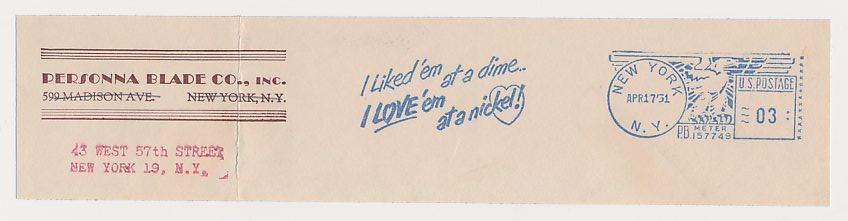 PERSONNA BLADE CO., INC.
599 MADISON AVE. NEW YORK, N.Y.
43 WEST 57th STREET
NEW YORK 19, N.Y.
I Liked 'em at a dime..
I LOVE 'em at a nickel!
NEW YORK
APR 17'51
N.Y.
U.S. POSTAGE
03
P.B. METER 157749